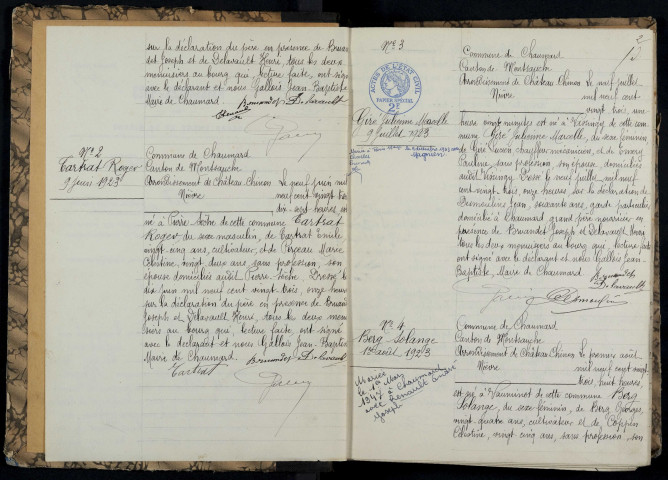 sur la déclaration du père en présence de Bruan
det Joseph et de Delavault Henri, tous les deux
menuisiers au bourg qui, lecture faite, ont signé
avec le déclarant et nous Gallois Jean Baptiste
Maire de Chaumard
Bruandet Delavault
N° 2
Tartrat Roger
9 juin 1923
Commune de Chaumard
Canton de Montsauche
Arrondissement de Château Chinon
Nièvre
Le neuf juin mil
neuf cent vingt trois
heures est
né à Pierre de cette commune Tartrat
Roger du sexe masculin, de Tartrat Emile
vingt cinq ans, cultivateur, et de Marie
Célestine, vingt deux ans sans profession, son
épouse domiciliés audit Pierre. Dressé le
dix juin mil neuf cent vingt trois, onze heures
sur la déclaration du père en présence de Bruandet
Joseph et Delavault Henri, tous les deux menui
siers au bourg qui, lecture faite, ont signé
avec le déclarant et nous Gallois Jean Baptiste
Maire de Chaumard
Bruandet Delavault
Tartrat
N° 3
ACTES DE L'ETAT CIVIL
PAPIER SPECIAL
2F
Julienne Marcelle
9 Juillet 1923
2
Commune de Chaumard
Canton de Montsauche
Arrondissement de Château Chinon
Nièvre
Le neuf juillet
mil neuf cent
vingt trois, une
heure vingt minutes est née à de cette com
mune Julienne Marcelle, du sexe féminin,
de chauffeur mécanicien, et de
sans profession, son épouse domiciliés
audit Dressé le neuf juillet mil neuf
cent vingt trois, onze heures, sur la déclaration de
Jean, soixante ans, garde particulier,
domicilié à Chaumard grand père en
présence de Bruandet Joseph et Delavault Henri
tous les deux menuisiers au bourg qui, lecture faite
ont signé avec le déclarant et nous Gallois Jean
Baptiste, Maire de Chaumard
Bruandet
Delavault
N° 4
Berg Solange
1er août 1923
Mariée
le 1er Mars
1947 à Chaumard
avec Renault
Joseph
Commune de Chaumard
Canton de Montsauche
Arrondissement de Château Chinon
Nièvre
Le premier août
mil neuf cent vingt
trois, huit heures
est née à de cette commune Berg
Solange, du sexe féminin, de Berg Georges,
vingt quatre ans, cultivateur et de
Célestine, vingt cinq ans, sans profession, son